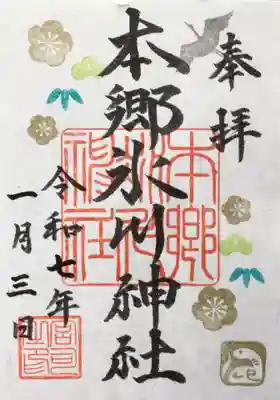 奉拝
本郷氷川神社
令和七年
一月三日
本郷氷川神社
巳